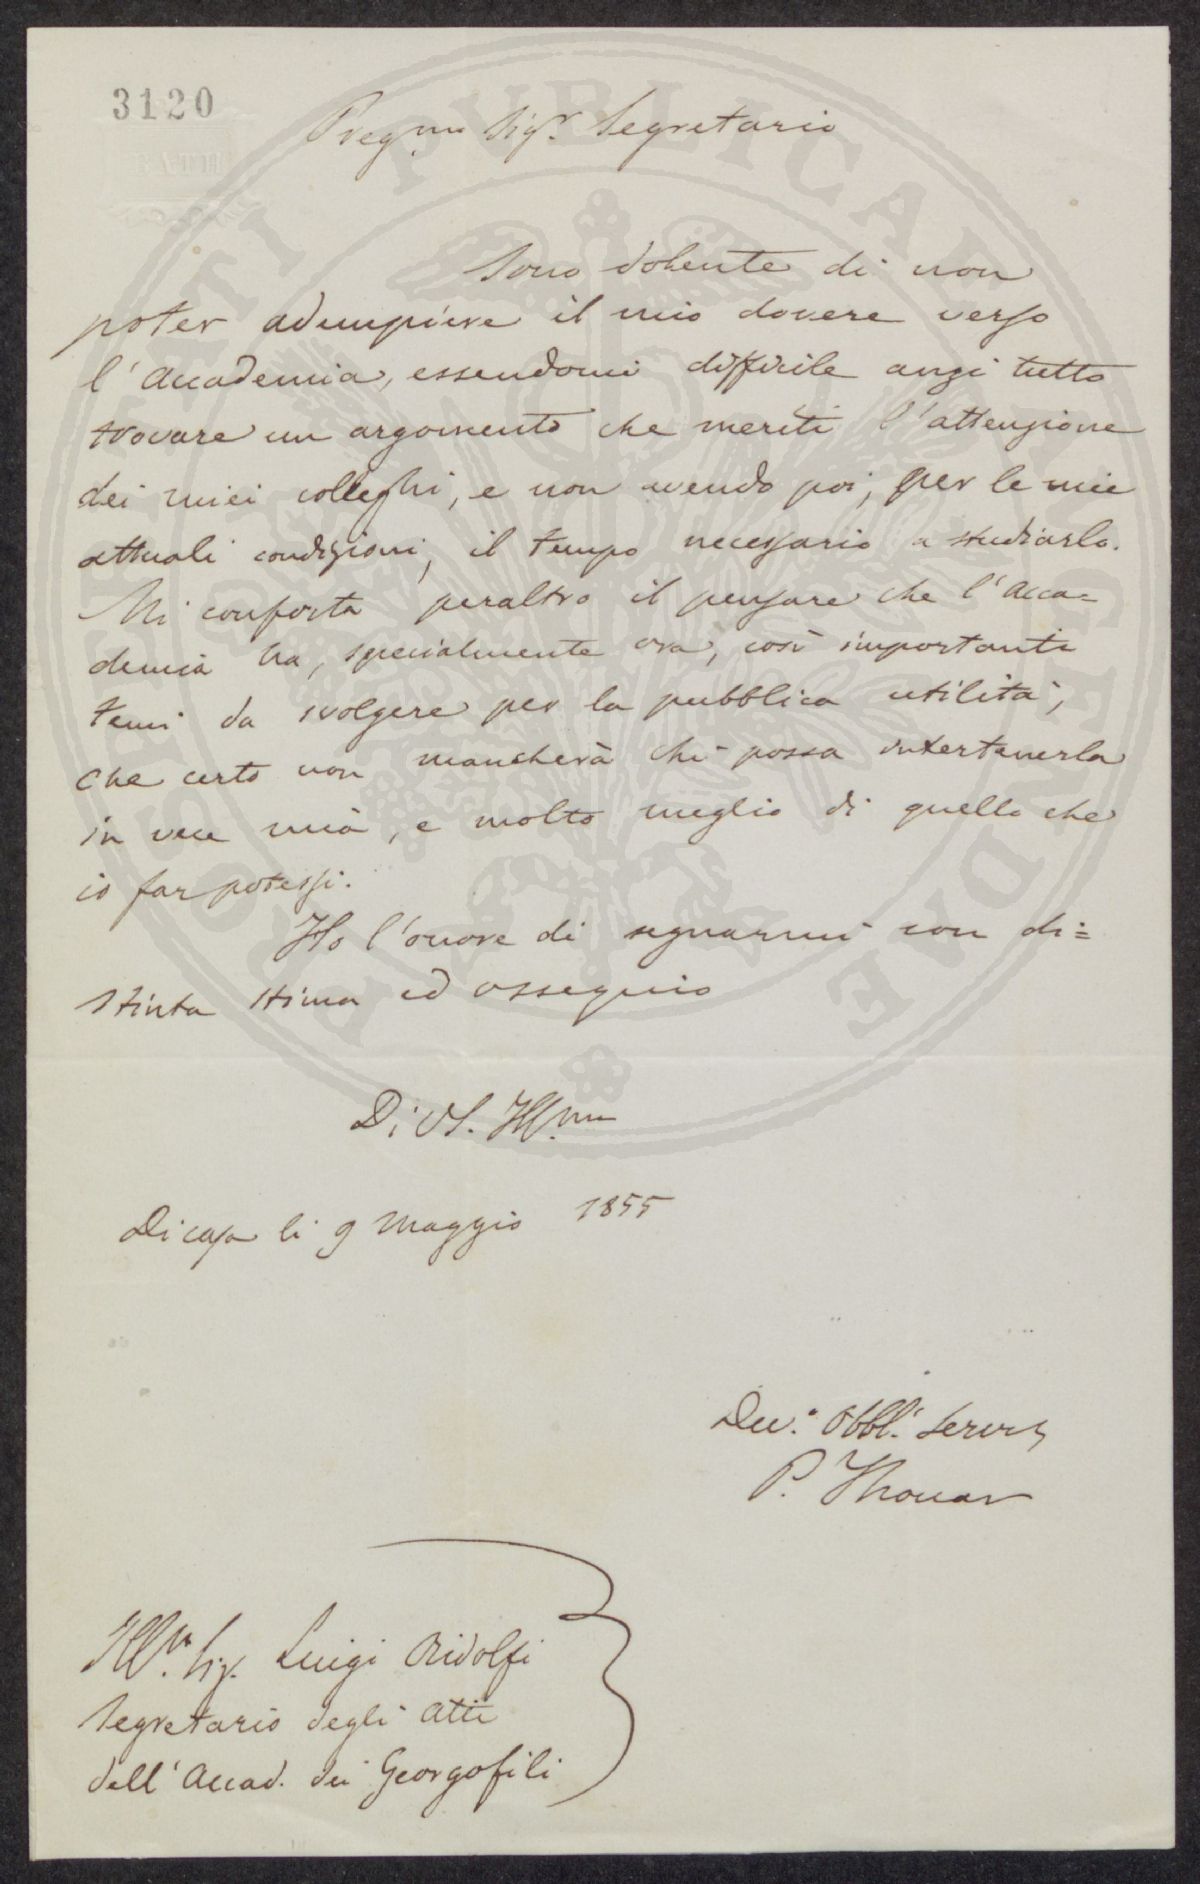 3120
BATH
Preg.mo Sig.r Segretario
Sono dolente di non
poter adempiere il mio dovere verso
l'Accademia, essendomi difficile anzi tutto
trovare un argomento che meriti l'attenzione
dei miei colleghi, e non avendo poi, per le mie
attuali condizioni, il tempo necessario a studiarlo.
Mi conforta peraltro il pensare che l'Acca=
demia ha, specialmente ora, così importanti
temi da svolgere per la pubblica utilità,
che certo non mancherà chi possa intertenerla
in vece mia, e molto meglio di quello che
io far potessi.
Ho l'onore di segnarmi con di=
stinta stima ed ossequio
Di VS. Ill.ma
Di casa li 9 Maggio 1855
Dev.o Obbl.o Serv.
P. Thouar
Ill.mo Sig. Luigi Ridolfi
Segretario degli Atti
dell'Accad. dei Georgofili
PROSPERITATI PUBLICAE AUGENDAE